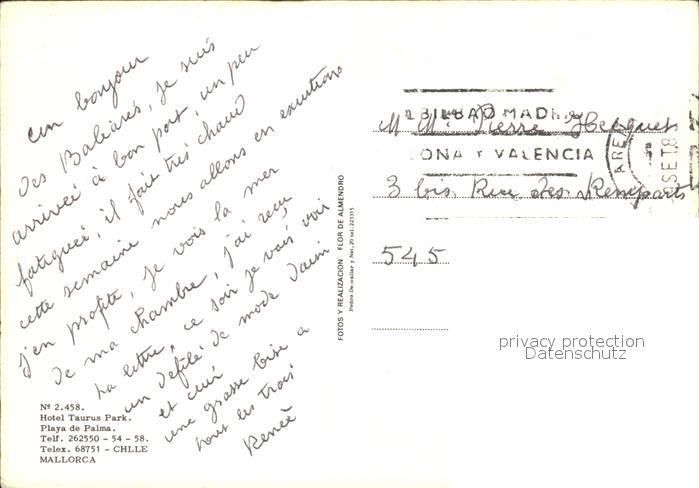 un bonjour
des Baléares, je suis
arrivée à bon port, un peu
fatiguée, il fait très chaud
cette semaine nous allons en excursions
j'en profite, je vois la mer
de ma chambre, j'ai reçu
ta lettre, ce soir je vais voir
un défilé de mode daim
et cuir
une grosse bise a
tous les trois
Renée
Nº 2.458.
Hotel Taurus Park.
Playa de Palma.
Telf. 262550 - 54 - 58.
Telex. 68751 - CHLLE
MALLORCA
FOTOS Y REALIZACION FLOR DE ALMENDRO
BILBAO MADR
ONA Y VALENCIA
ARE
SET 8
M Mme Pierre
3 bis Rue des Remparts
545
privacy protection
Datenschutz